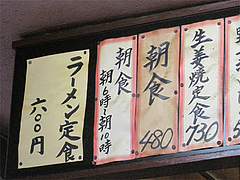 生姜焼定食
730
朝食
480
朝食
朝6時〜朝10時
ラーメン定食
六〇〇円